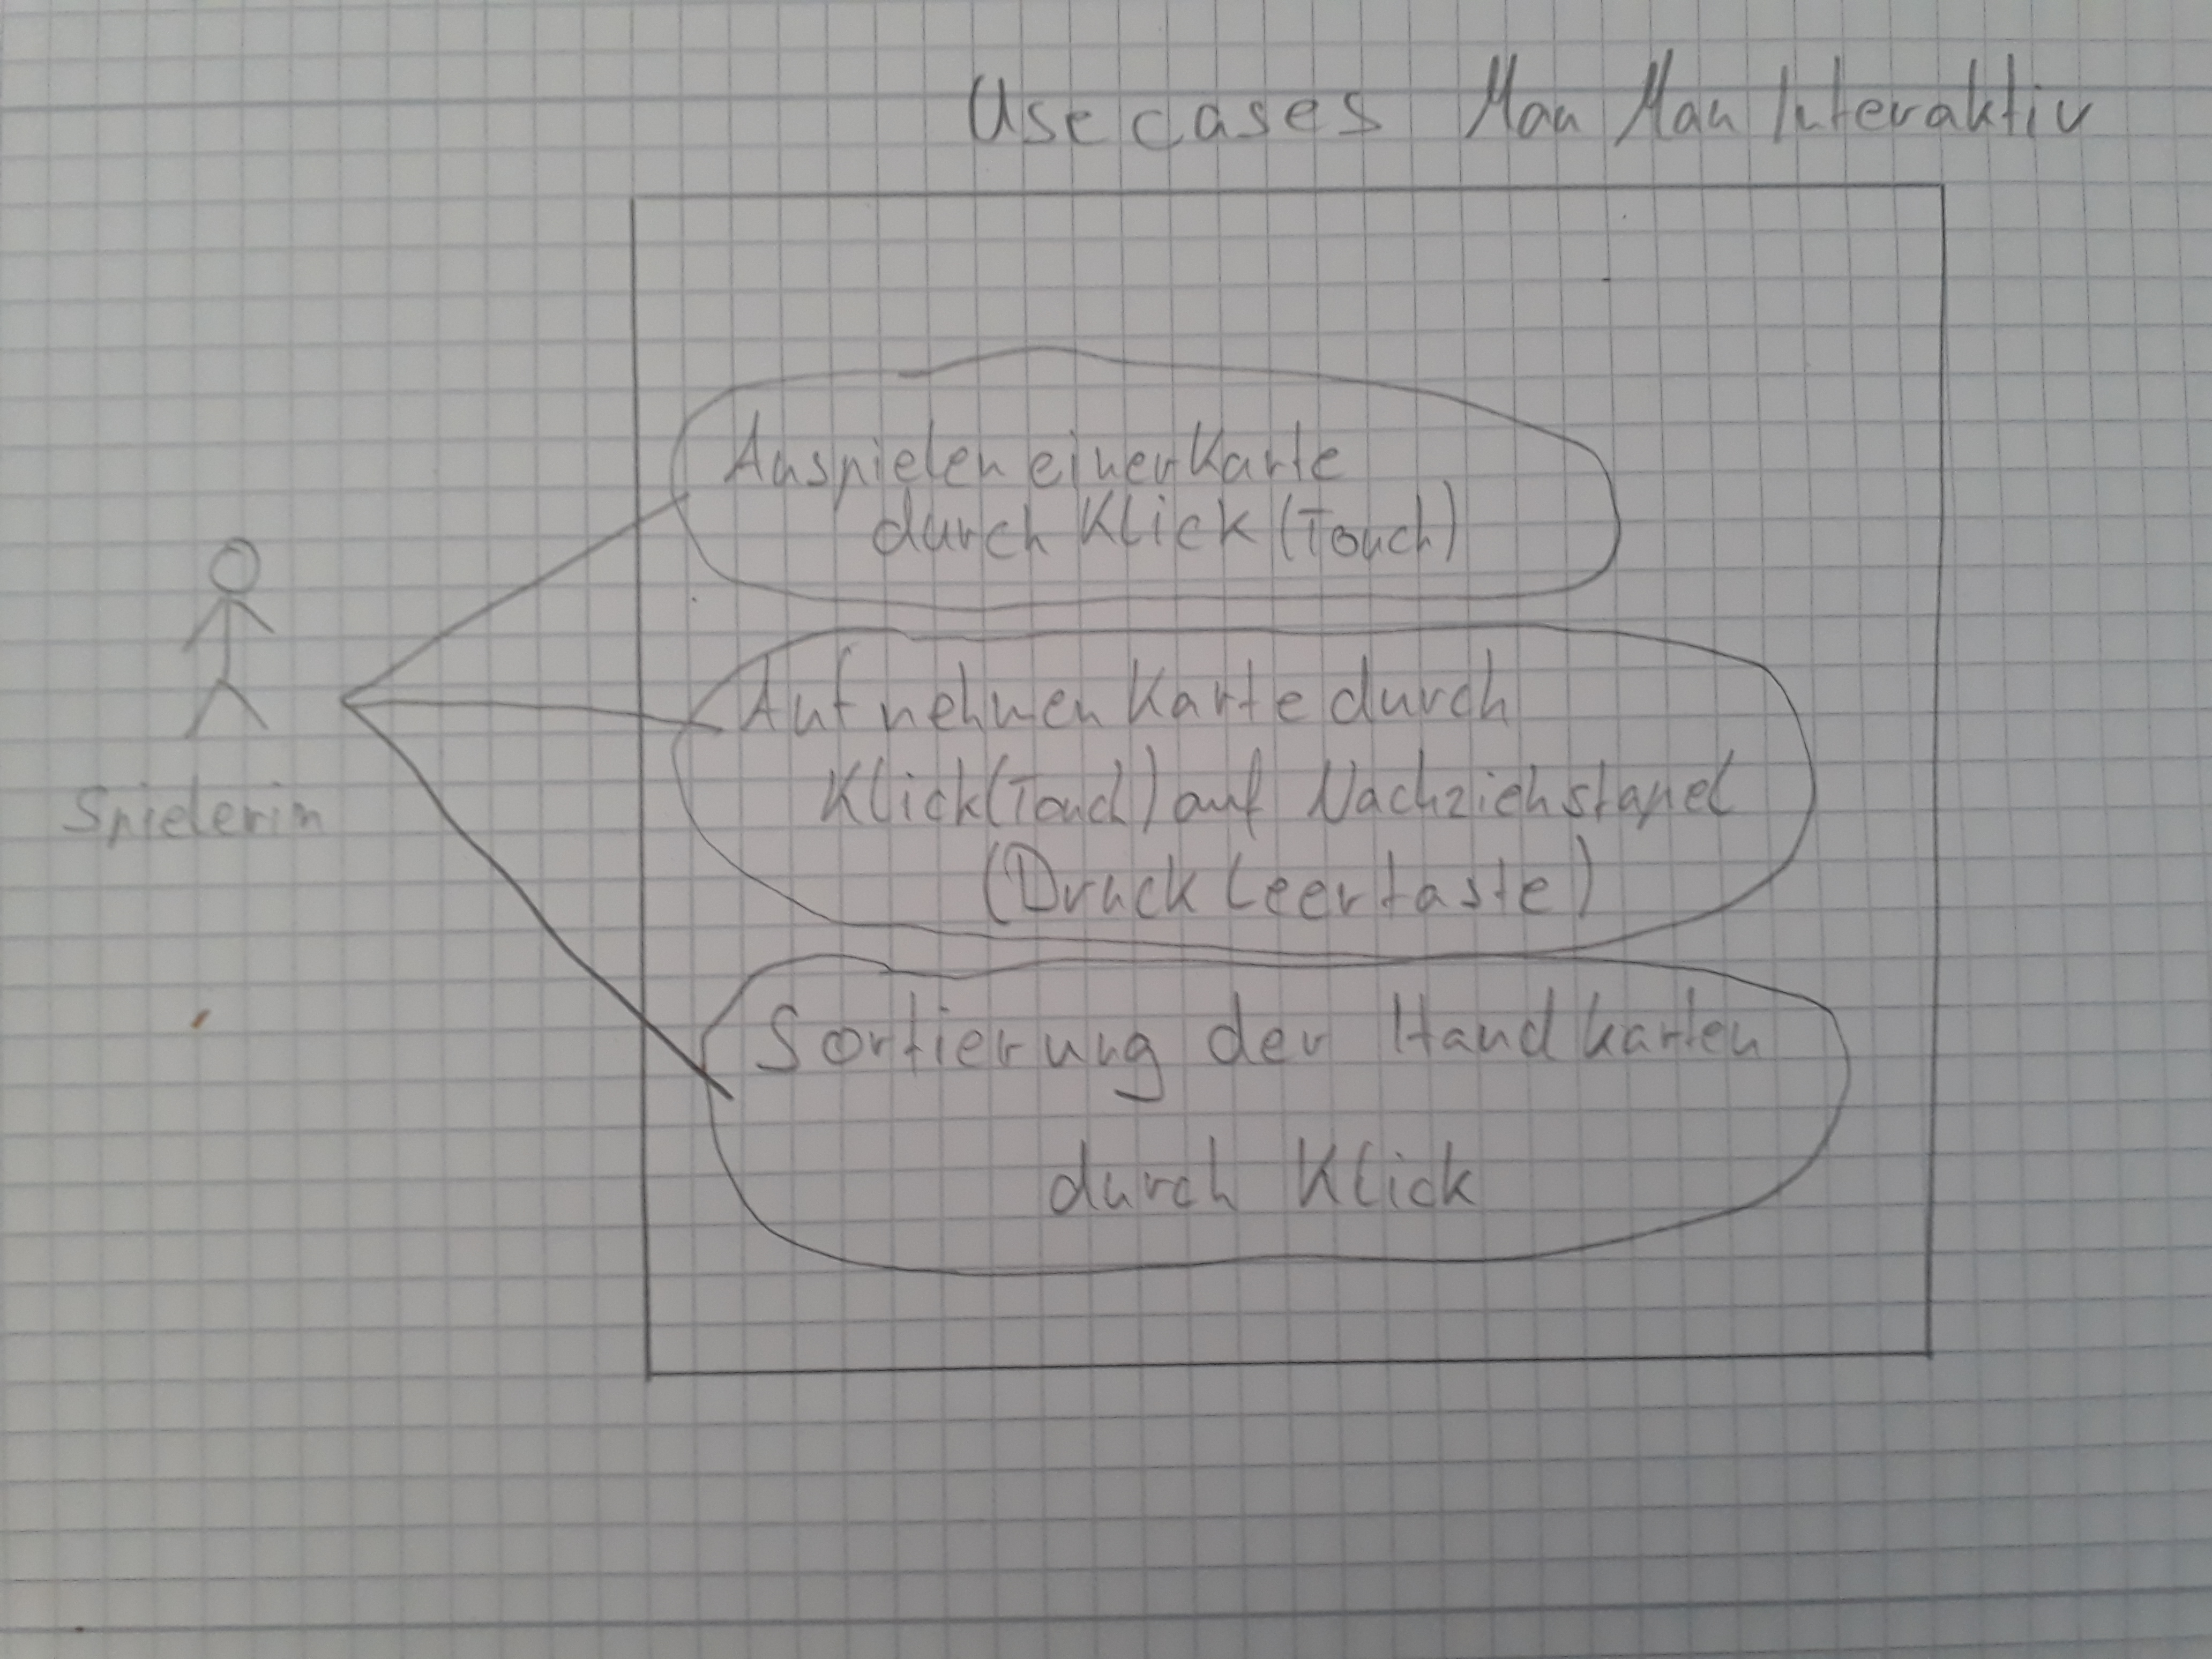 Usecases Mau Mau Interaktiv
Ausspielen einer Karte
durch Klick (Touch)
Aufnehmen Karte durch
Klick (Touch) auf Nachziehstapel
(Druck Leertaste)
Spielerin
Sortierung der Handkarten
durch Klick